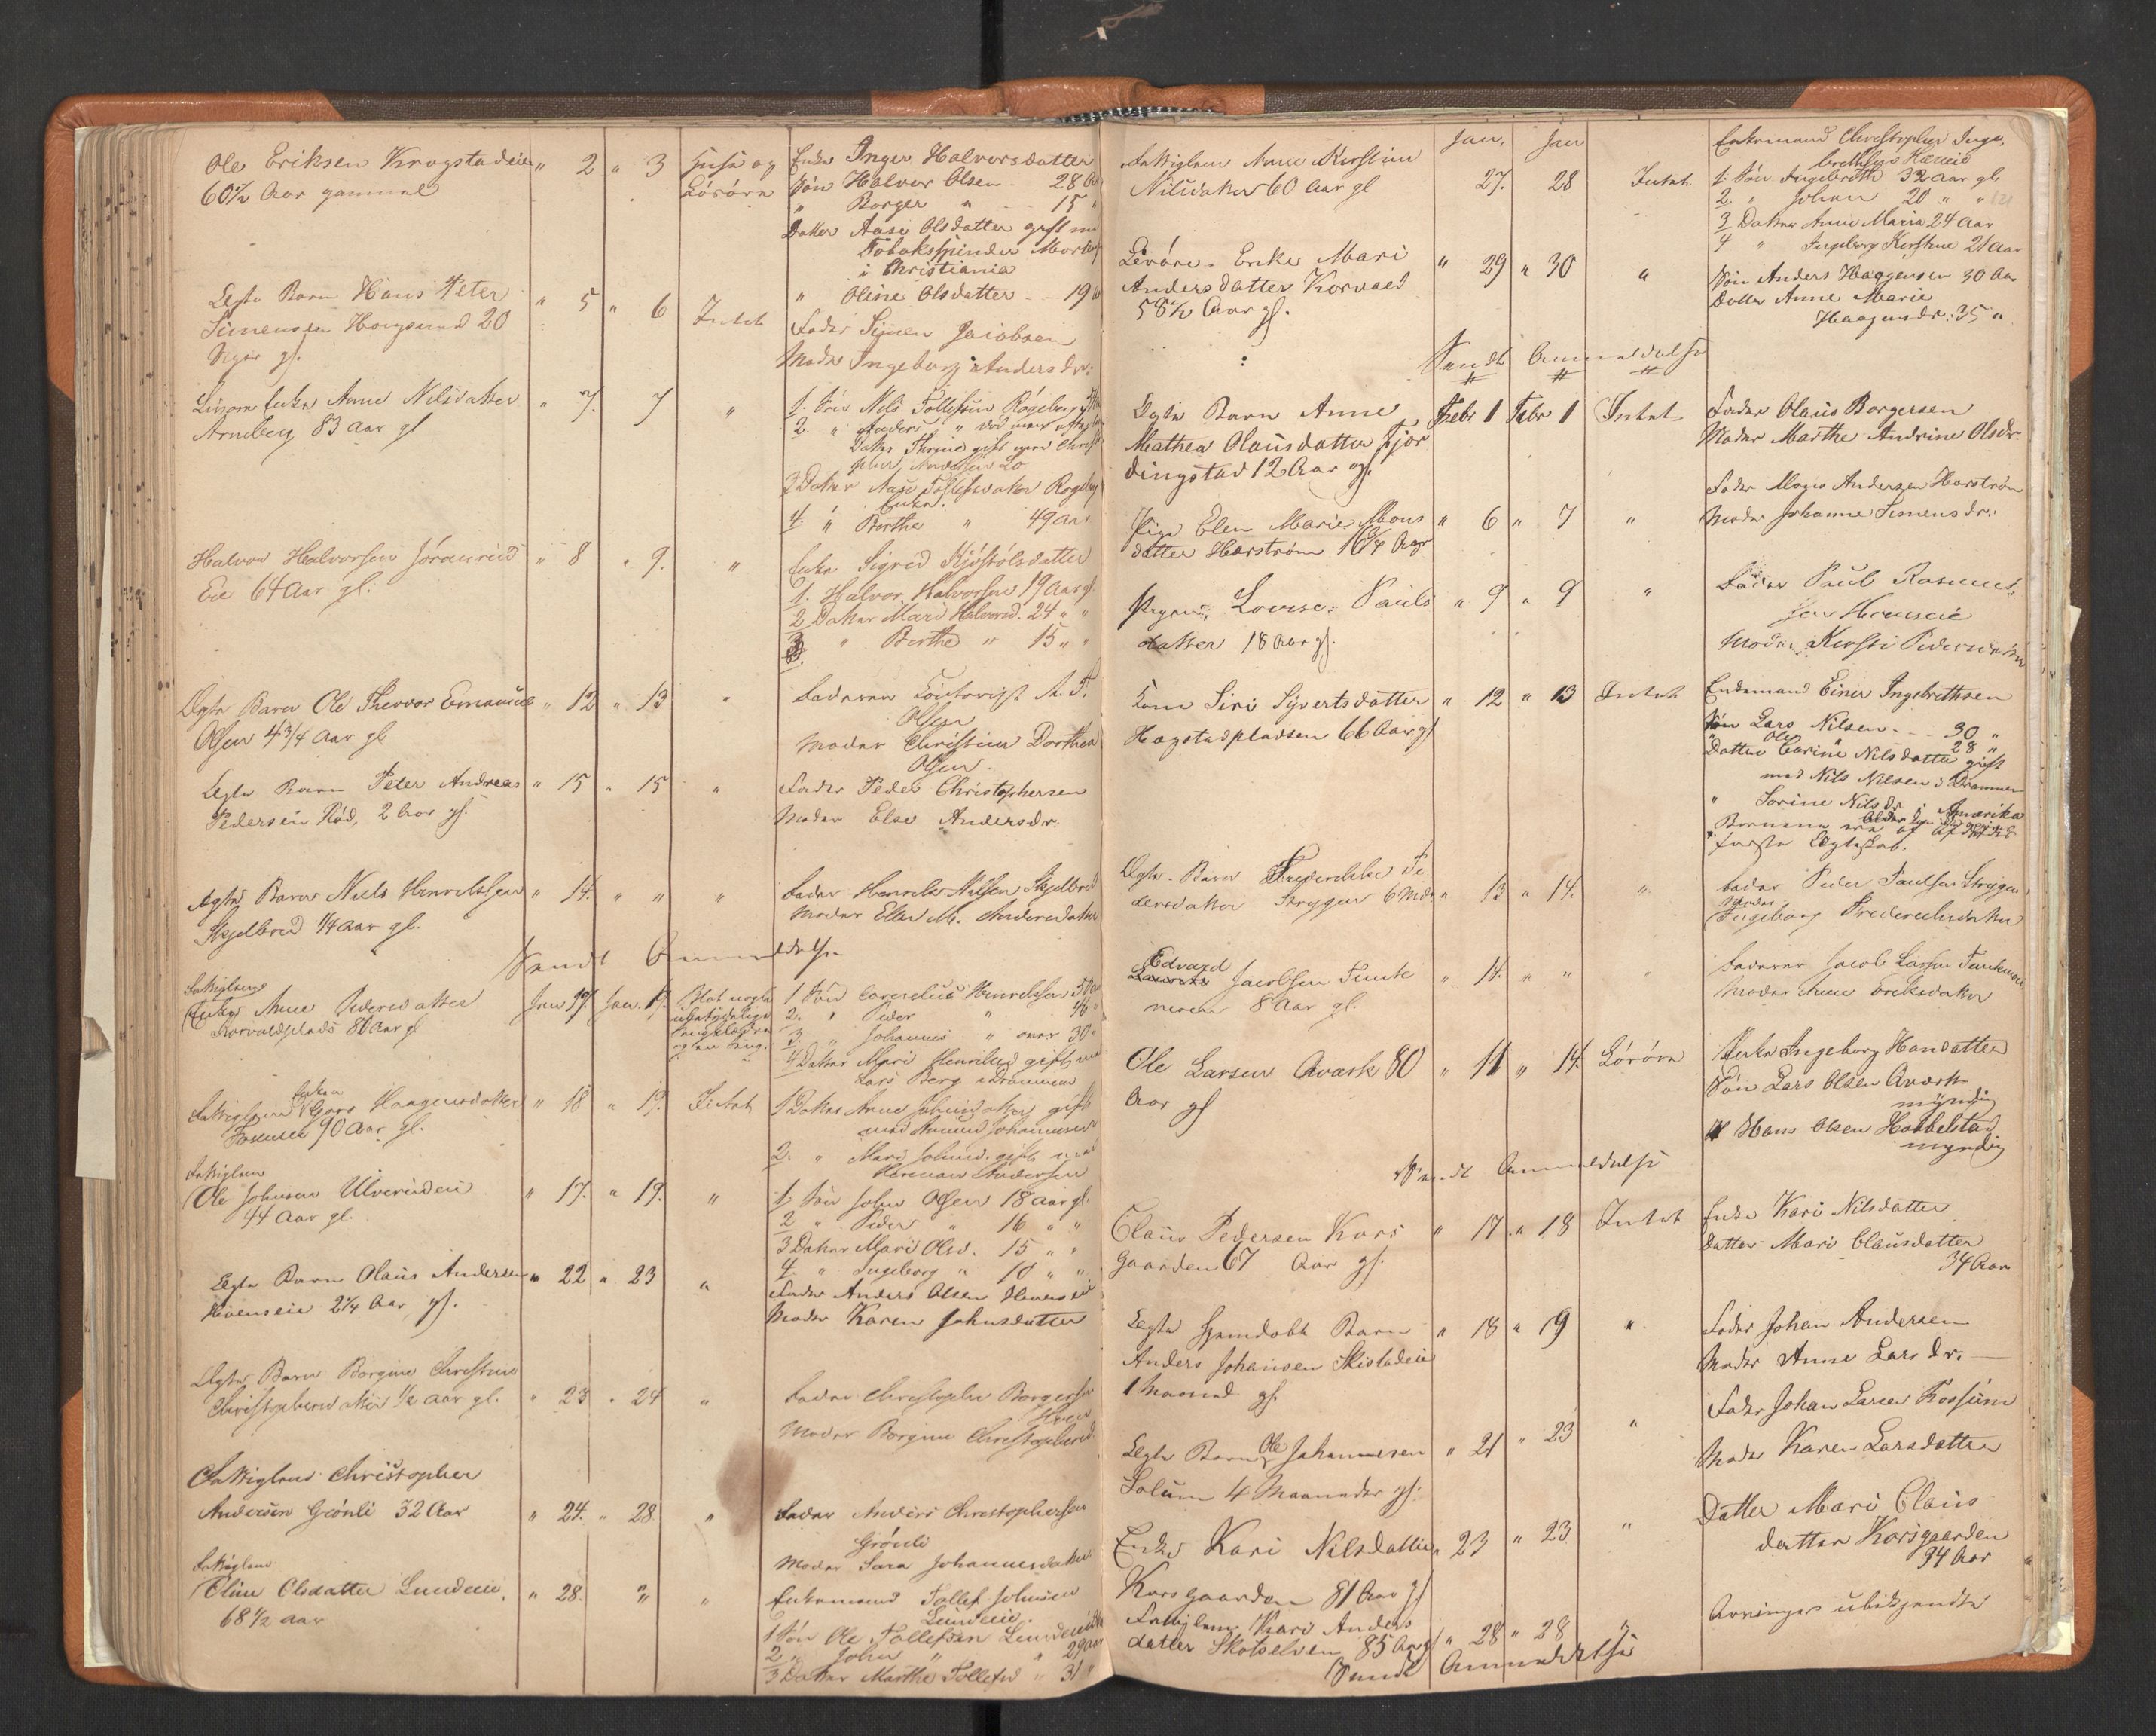 Ole Eriksen Krogstadeie " 2 " 3 Huse og
60½ Aar gammel Løsøre
Enke Inger Halvorsdatter
Søn Halvor Olsen 28 Aar
" Borger " 15 "
Datter Aase Olsdatter gift m
Tobaksspinder
i Christiania
" Oline Olsdatter 19
Ægte Barn Hans Peter " 5 " 6 Intet
Simensen Hougsund 20
Uger gl.
Fader Simen Jacobsen
Moder Ingeborg Andersdr.
Enke Anne Nilsdatter " 7. 7 "
Arneberg 83 Aar gl
1. Søn Nils Tollefsen Røgeberg
2. " Anders "
3 Datter Aase Tollefsdatter
Enke.
4. " Berthe " 49 Aar
Halvor Halvorsen " 8 " 9. "
Eie 64 Aar gl.
Enke Sigrid Kjøstolsdatter
1. Halvor Halvorsen 19 Aar gl.
2 Datter Mari Halvorsd. 24 " "
3 " Berthe " 15 " "
Ægte Barn Ole Thevvor Emanuel " 12 " 13 "
Olsen 4¾ Aar gl
Faderen A. T.
Olsen
Moder Christine Dorthea
Olsen
Ægte Barn Peter Andreas " 15 " 15 "
Pedersen Rød, 2 Aar gl.
Fader Peder Christophersen
Moder Else Andersdr.
Ægte Barn Niels Henriksen " 14. " " "
Skjelbred ¼ Aar gl.
Fader Henrik Nilsen Skjelbred
Moder Ellen M. Andersdatter
Sendt Anmeldelse
Fattiglem
Enke Anne Pedersdatter Jan 17. Jan. 17. Blot nogle
Korvaldplads 80 Aar gl ubetydelige
1 Søn Cornelius Henriksen
2. " Peder " 46 "
3. " Johannes " over 30 "
4 Datter Mari Henriksd. gift m
Lars Berg i Drammen
Enke
Fattiglem Haagensdatter " 18 " 19. Intet
90 Aar gl.
1 Datter Anne gift
med Amund Johannesen
2. " Mari gift med
Herman Andersen
Fattiglem
Ole Johnsen Ulverudeie " 17. " 19. "
44 Aar gl.
1. Søn John Olsen 18 Aar gl.
2 " Peder " 16 " "
3 Datter Mari Olsd. 15 " "
4. " Ingeborg " 10 " "
Ægte Barn Olaus Andersen " 22 " 23 "
Hvenseie 2¼ Aar gl.
Fader Anders Olsen Hvenseie
Moder Karen Johnsdatter
Ægte Barn Borgine Christine
Christophersdatter ½ Aar gl. " 23 " 24 "
Fader Christopher Borgersen
Hven
Moder Borgine Christophersd
Fattiglem Christopher
Andersen Grønli 32 Aar " 24. " 28. "
Fader Anders Christophersen
Grønli
Moder Sara Johannesdatter
Fattiglem
Oline Olsdatter Lundeie. " 28. " "
68½ Aar
Enkemand Tollef Johnsen
Lundeie.
1 Søn Ole Tollefsen Lundeie
2 " John " " 29 Aar
3 Datter Marthe Tollefsd " 31 "
Jan. Jan
Fattiglem Anne Kirstine
Nilsdatter 60 Aar gl 27. 28 Intet
Enkemand Christopher Inge,
brethsen
1. Søn Ingebreth 32 Aar gl
2. " Johan 20 " "
3 Datter Anne Maria 24 Aar
4 " Ingeborg Kirstine 21 Aar
Enke Mari " 29 " 30 "
Andersdatter Korvald
58½ Aar gl.
Søn Anders Haagensen 30 Aar
Datter Anne Marie
Haagensdr. 35 "
Sendt Anmeldelse
Ægte Barn Anne Febr 1 Febr 1 Intet
Mathea Olausdatter Fjor
dingstad 12 Aar gl.
Fader Olaus Borgersen
Moder Marthe Andrine Olsdr.
Pige Elen Marie Mons " 6 " 7 "
datter Horstrøm 16¼ Aar
Fader Mogns Andersen Horstrøm
Moder Johanne Simensdr.
Pigen, Lovise Pauls " 9 " 9 "
datter 18 Aar gl.
Fader Paul Rasmus,
sen
Moder Kirsti Pedersdatter
Kone Siri Syvertsdatter " 12 " 13 Intet
Hagstadpladsen 66 Aar gl
Enkemand Einer Ingebrethsen
Søn Lars Nilsen 30 "
" Ole " 28 "
Datter Carine Nilsdatter gift
med Nils Nilsen i Drammen
" Sorine Nilsdr i Amerika
Børnene ere af Afdødes
første Ægteskab.
Ægte Barn Frederikke Pe
dersdatter Strygen 6 Mdr " 13 " 14. "
Fader Peder Paulsen Strygen
Moder
Ingeborg Frederiksdatter
Edvard
Jacobsen Tank " 14. " " "
moen 8 Aar gl.
Faderen Jacob Larsen Tankmoen
Moder Anne Eriksdatter
Ole Larsen Aværk 80 " 11 " 14. Løsøre
Aar gl
Enke Ingeborg Hansdatter
Søn Lars Olsen Aværk
myndig
" Hans Olsen Hobbelstad
myndig
Sendt Anmeldelse
Claus Pedersen Kors " 17 " 18 Intet
gaarden 67 Aar gl.
Enke Kari Nilsdatter
Datter Mari Clausdatter
34 Aar
Ægte hjemdøbt Barn " 18 " 19 "
Anders Johansen Skistadeie
1 Maaned gl.
Fader Johan Andersen
Moder Anne Larsdr.
Ægte Barn Ole Johannesen " 21 " 23 "
Solum 4 Maaneder gl.
Fader Johan Larsen Fossum
Moder Karen Larsdatter
Enke Kari Nilsdatter " 23 " 23 "
Korsgaarden 81 Aar gl
Datter Mari Claus
datter Korsgaarden
34 Aar
Fattiglem Kari Anders
datter Skotselven 85 Aar gl " 28 " 28 "
Arvinger ubekjendte
Sendt Anmeldelse